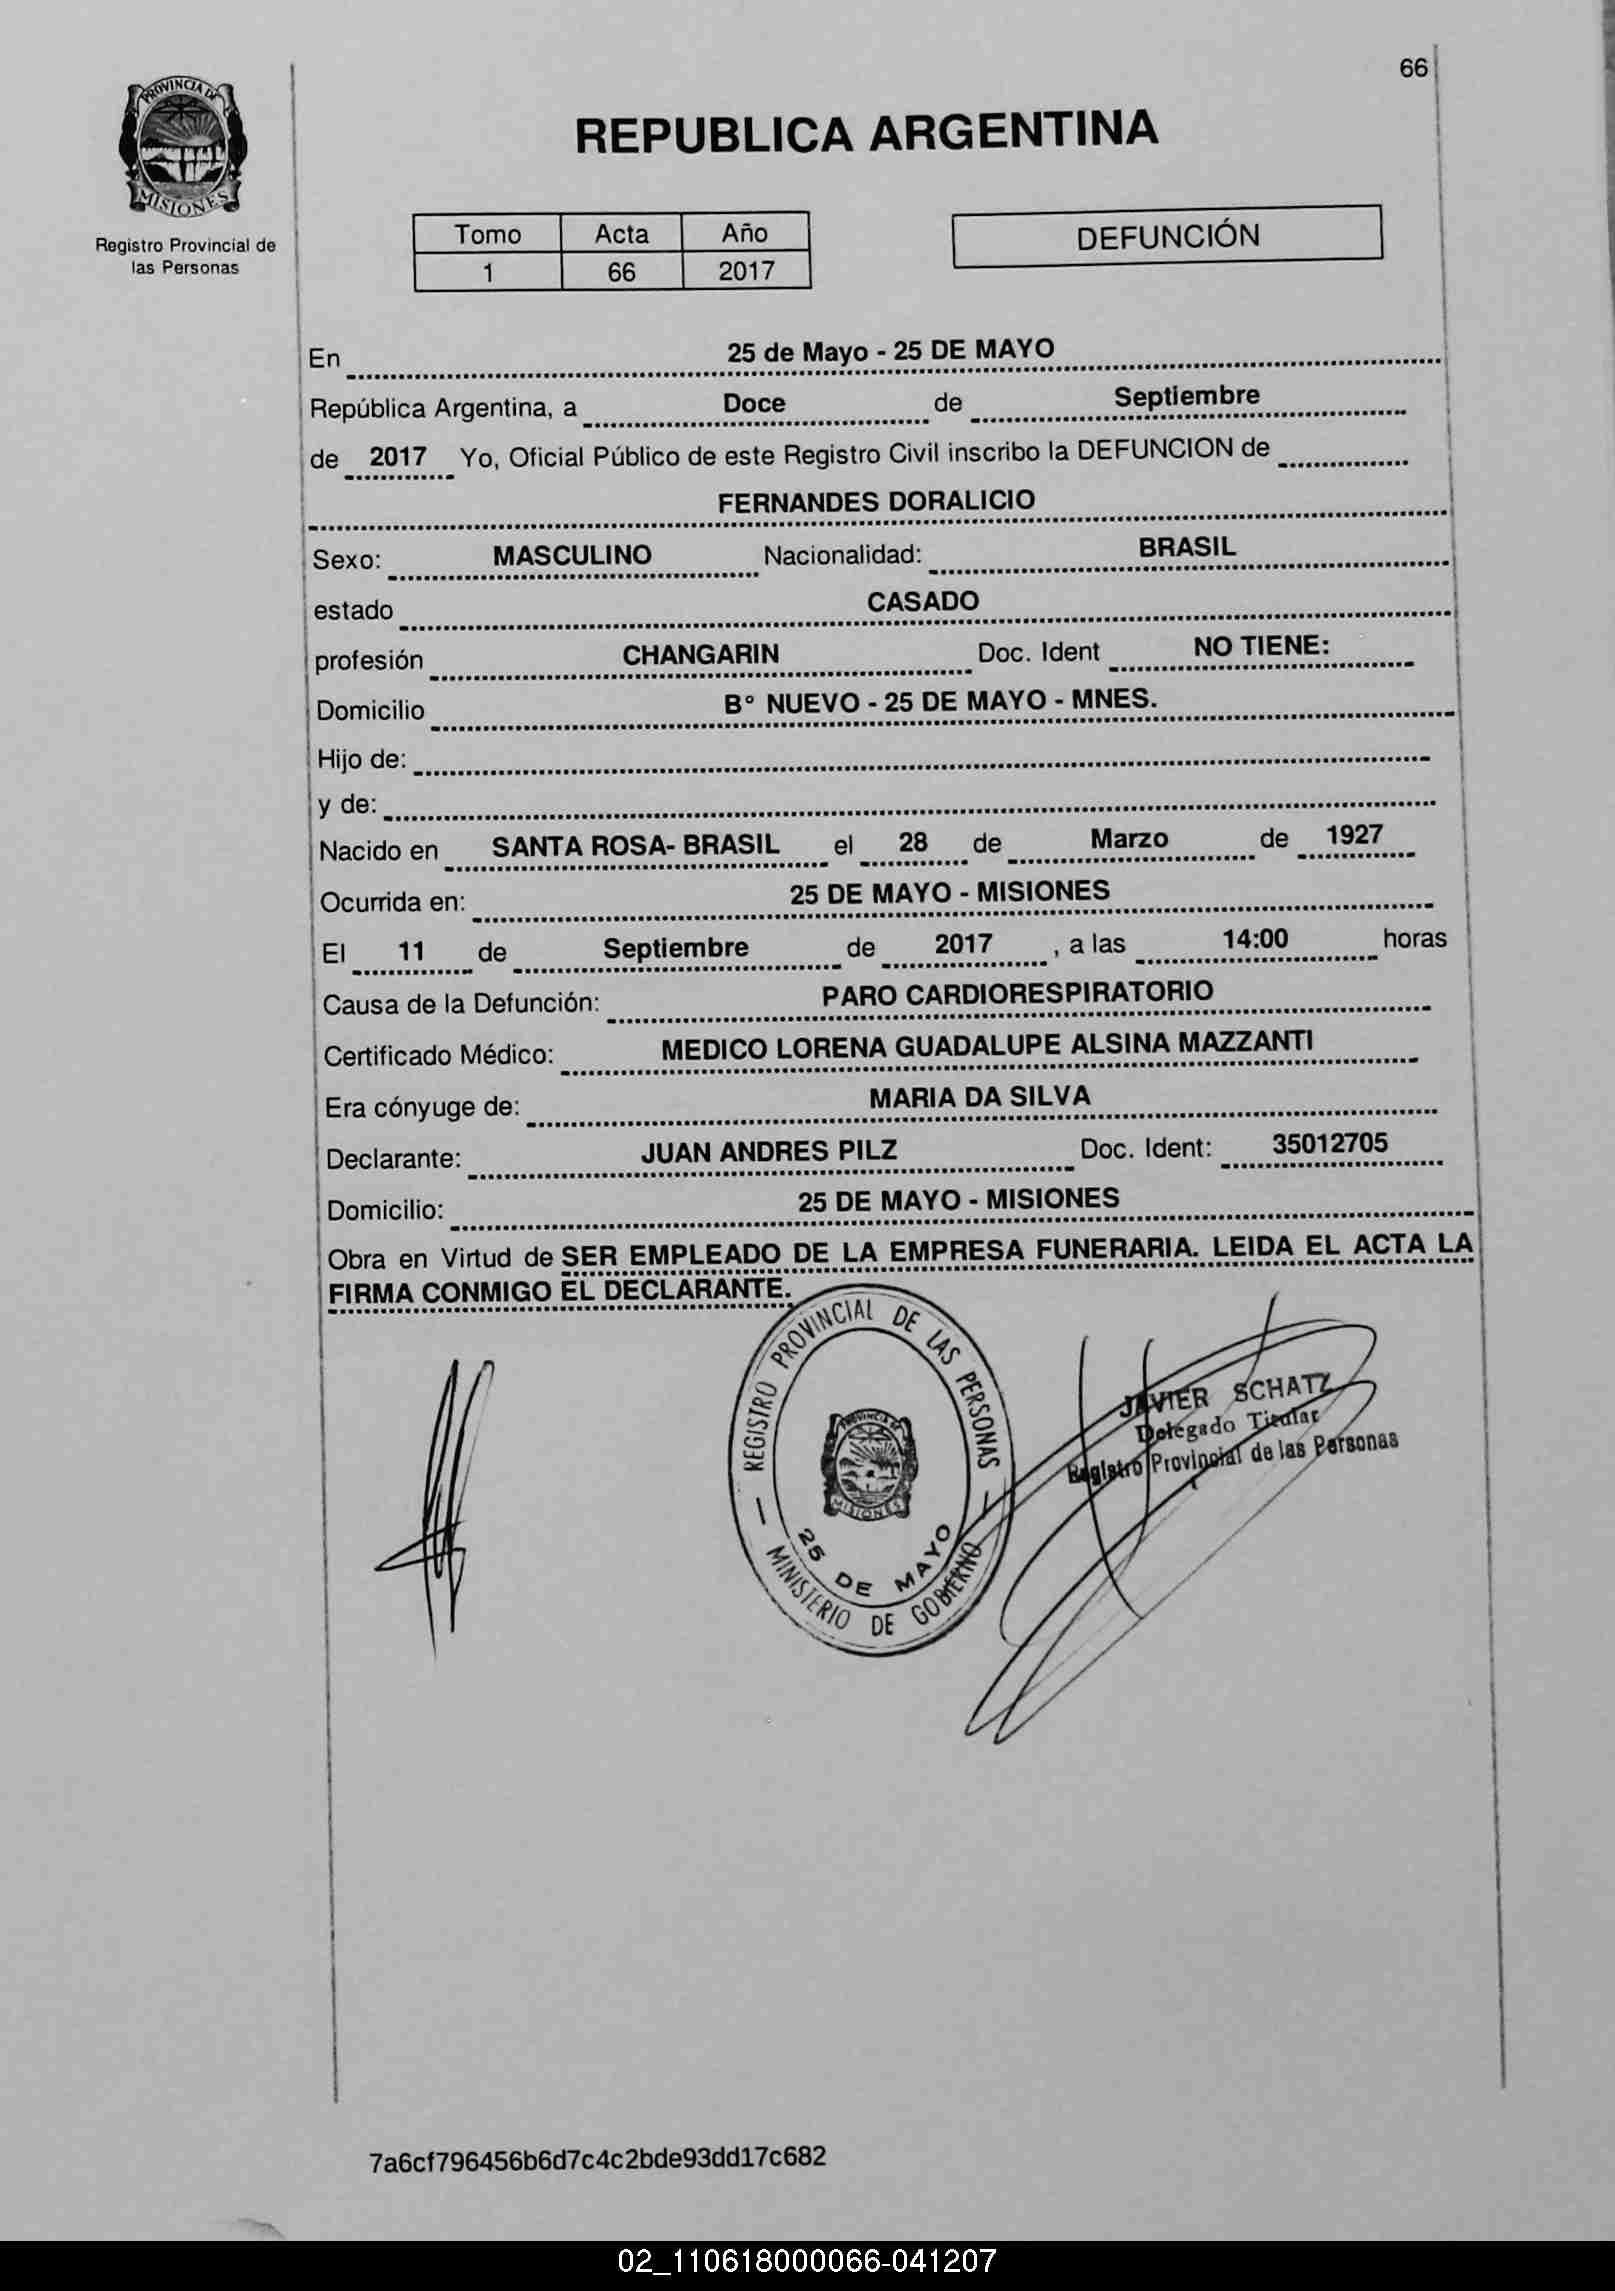 66
PROVINCIA DE
MISIONES
Registro Provincial de
las Personas
REPUBLICA ARGENTINA
Tomo Acta Año
1 66 2017
DEFUNCIÓN
En 25 de Mayo - 25 DE MAYO
República Argentina, a Doce de Septiembre
de 2017 Yo, Oficial Público de este Registro Civil inscribo la DEFUNCION de
FERNANDES DORALICIO
Sexo: MASCULINO Nacionalidad: BRASIL
estado CASADO
profesión CHANGARIN Doc. Ident NO TIENE:
Domicilio B° NUEVO - 25 DE MAYO - MNES.
Hijo de:
y de:
Nacido en SANTA ROSA- BRASIL el 28 de Marzo de 1927
Ocurrida en: 25 DE MAYO - MISIONES
El 11 de Septiembre de 2017 , a las 14:00 horas
Causa de la Defunción: PARO CARDIORESPIRATORIO
Certificado Médico: MEDICO LORENA GUADALUPE ALSINA MAZZANTI
Era cónyuge de: MARIA DA SILVA
Declarante: JUAN ANDRES PILZ Doc. Ident: 35012705
Domicilio: 25 DE MAYO - MISIONES
Obra en Virtud de SER EMPLEADO DE LA EMPRESA FUNERARIA. LEIDA EL ACTA LA
FIRMA CONMIGO EL DECLARANTE.
REGISTRO PROVINCIAL DE LAS PERSONAS
PROVINCIA DE
MISIONES
25 DE MAYO
MINISTERIO DE GOBIERNO
JAVIER SCHATZ
Delegado Titular
Registro Provincial de las Personas
7a6cf796456b6d7c4c2bde93dd17c682
02_110618000066-041207